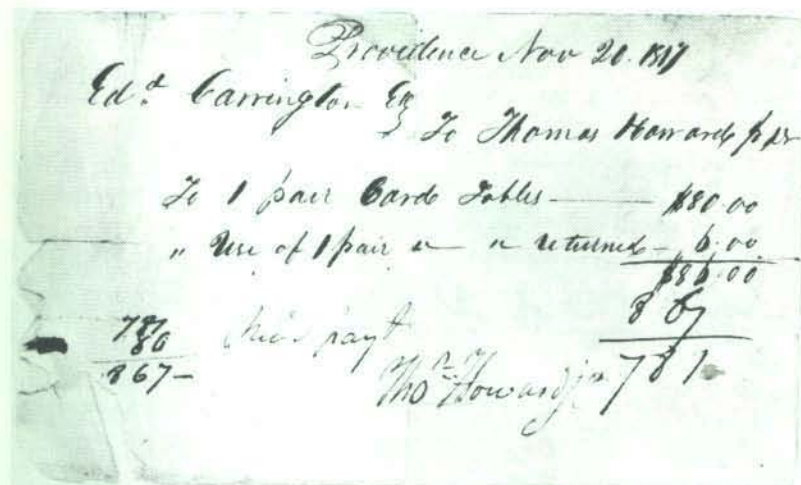 Providence Nov 20. 1817
Edd. Carrington Esq
To Thomas Howard jr Dr
To 1 pair Card Tables — $80.00
" Use of 1 pair " " returned — 6.00
$86.00
867
781
781
86
867 –
Recd payt
Thos. Howard jr